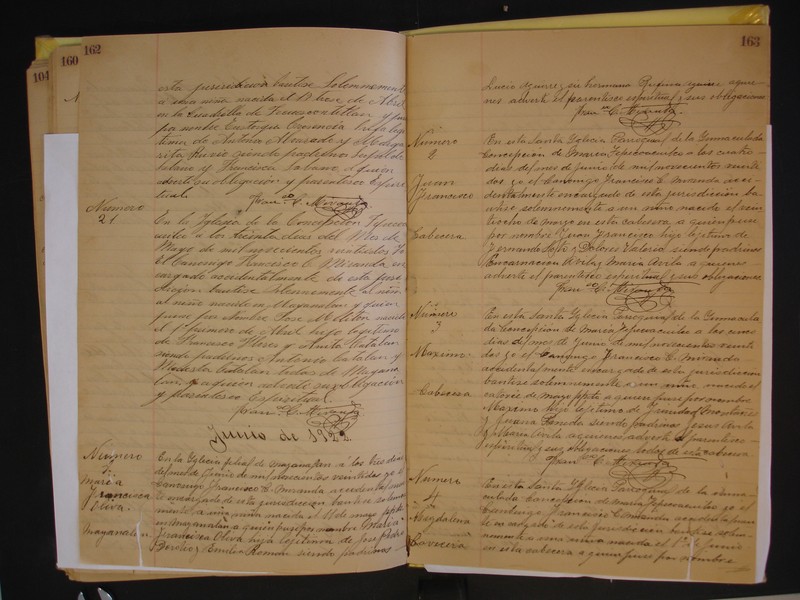 104
160
162
esta jurisdiccion bautise Solemnemente
a una niña nacida el trese de Abril
en la Cuadrilla de
por nombre hija legi
tima de Antonio Alvarado y Marga
rita siendo padrinos
y Francisca a quien
advertí su obligacion y parentesco espiri
tual
Fran.co C. Miranda
Número
21
En la Iglesia de la Concepcion
a los treinta dias del Mes de
Mayo de mil novecientos veintidos Yo
el Canonigo Francisco C. Miranda en
cargado accidentalmente de esta juris
diccion bautise Solemnemente
al niño nacido en Mayanalan y quien
puse por nombre Jose nacido
el 1º primero de Abril hijo legitimo
de Francisco Flores y Anita Catalan
siendo padrinos Antonio Catalan y
Modesta Catalan todos de Mayana
lan, a quien advertí su obligacion
y parentesco Espiritual.
Fran.co C. Miranda
Junio de 1922
Número
1
Maria
Francisca
Oliva.
Mayanalan
En la Yglesia filial de Mayanalan a los tres dias
del mes de Junio de mil novecientos veintidos yo el
Canonigo Francisco C. Miranda accidentalmen
te encargado de esta jurisdiccion bautise solemne
mente a una niña nacida el de mayo ppdo
en Mayanalan a quien puse por nombre Maria
Francisca Oliva hija legitima de Jose Pedro
y Emilia Roman siendo padrinos
163
Lucio Aguirre y su hermana Rufina Aguirre a quie-
nes advertí el parentesco espiritual y sus obligaciones
Fran.co C. Miranda
Número
2
Juan
Francisco
Cabecera
En esta Santa Yglecia Parroquial de la Inmaculada
Concepcion de Maria Tepecoacuilco a los cuatro
dias del mes de junio de mil novecientos veinti
dos yo el Canonigo Francisco C. Miranda acci-
dentalmente encargado de esta jurisdiccion bau
tisé solemnemente a un niño nacido el vein
tiocho de marzo en esta cabecera a quien puse
por nombre Juan Francisco hijo legitimo de
Fernando Soto y Dolores Valerio siendo padrinos
Encarnacion Avila y Maria Avila a quienes
advertí el parentesco espiritual y sus obligaciones
Fran.co C. Miranda
Número
3
Maximo
Cabecera
En esta Santa Yglecia Parroquial de la Inmacula
da Concepcion de Maria Tepecoacuilco a los cinco
dias del mes de Junio de mil novecientos veinti
dos yo el Canonigo Francisco C. Miranda
accidentalmente encargado de esta jurisdiccion
bautise solemnemente a un niño nacido el
catorce de mayo ppdo a quien puse por nombre
Maximo hijo legitimo de Trinidad Montañes
y Juana siendo padrinos Jesus Avila
y Maria Avila a quienes advertí el parentesco
espiritual y sus obligaciones todos de esta cabecera
Fran.co C. Miranda
Número
4
Magdalena
Cavecera
En esta Santa Yglecia Parroquial de la Inma-
culada Concepcion de Maria Tepecoacuilco yo el
Canonigo Francisco C. Miranda accidentalmen
te encargado de esta jurisdiccion bautise solem-
nemente a una niña nacida el 1º de Junio
en esta cabecera a quien puse por nombre